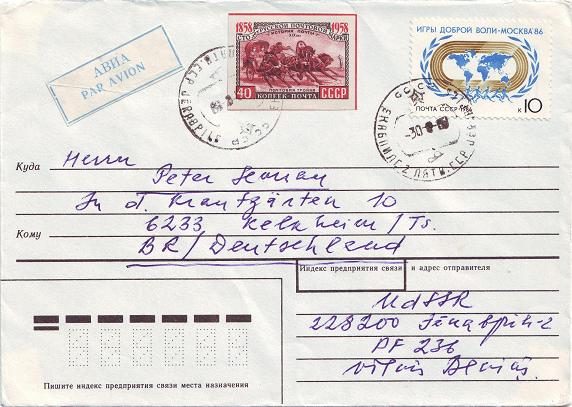 АВИА
PAR AVION
1858 1958
СТО ЛЕТ РУССКОЙ ПОЧТОВОЙ МАРКИ
40 КОПЕЕК·ПОЧТА СССР
ИГРЫ ДОБРОЙ ВОЛИ-МОСКВА'86
ПОЧТА СССР
к 10
Куда Herrn
Peter
In d. Krautgärten 10
6233 Kelkheim/Ts.
Кому
BR/Deutschland
Индекс предприятия связи и адрес отправителя
UdSSR
228200
PF 236
Пишите индекс предприятия связи места назначения